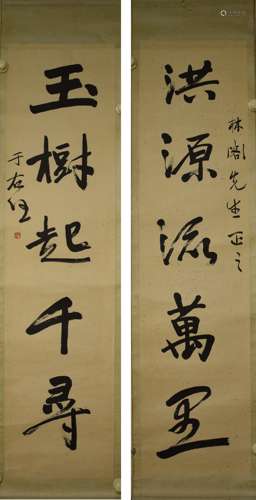 洪源流萬里
林阁先生正之
玉樹起千尋
于右任